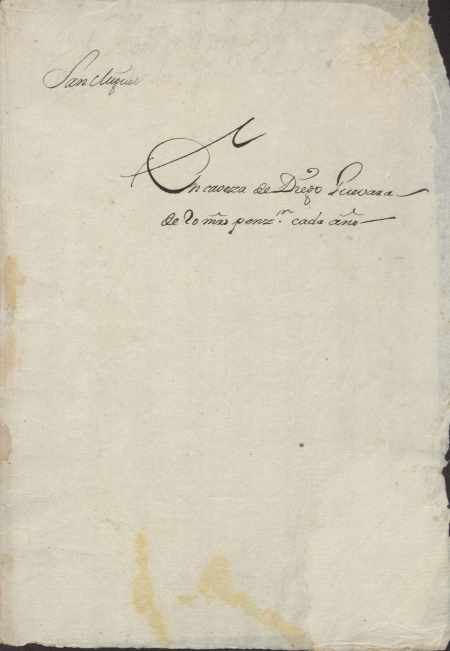 San Miguel
En caveza de Diego Guevara
de 20 mrs cada año